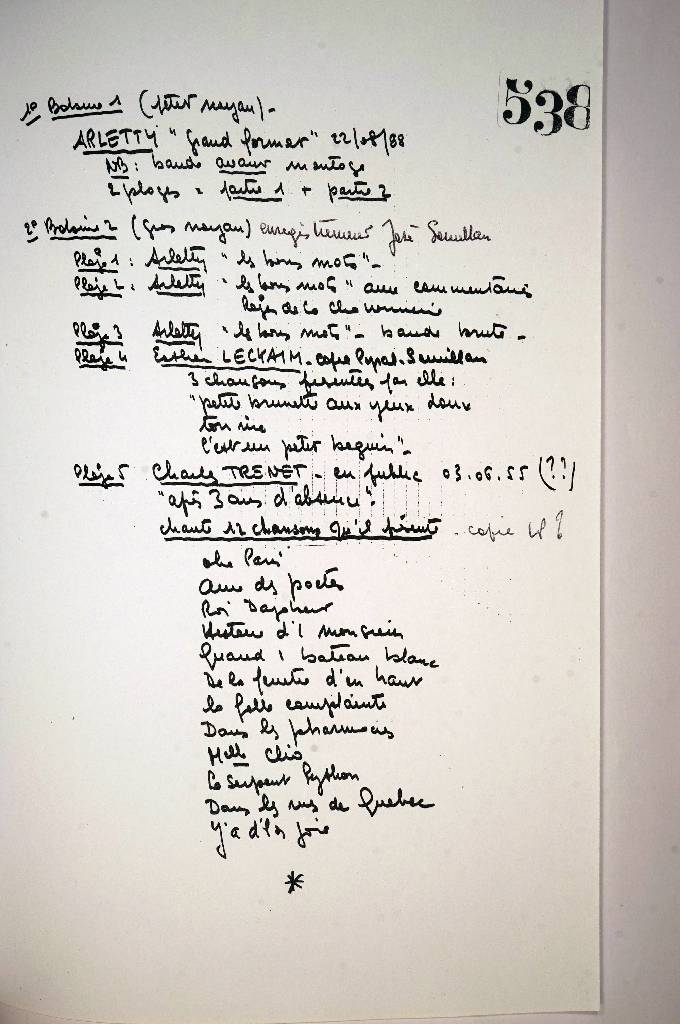 538
1º Bobine 1 (petit noyau) -
ARLETTY "Grand format" 22/08/88
NB : bande avant montage
2 plages = partie 1 + partie 2
2º Bobine 2 (Gros noyau) enregistrement José
Plage 1 : Arletty "les bons mots" -
Plage 2 : Arletty "les bons mots" avec commentaires
de la
Plage 3 Arletty "les bons mots" - bande brute -
Plage 4 Esther LECKAIM - copie
3 chansons présentées par elle :
"petite brunette aux yeux doux
ton rire
C'est un petit beguin" -
Plage 5 Charles TRENET - en public 03.06.55 (??)
"après 3 ans d'absence" -
chante 12 chansons qu'il présente - copie LP ?
ohe Paris
Ame des poetes
Roi Dagobert
Histoire d'1 monsieur
Quand 1 bateau blanc
De la fenetre d'en haut
la folle complainte
Dans les pharmacies
Melle Clio
Le Serpent Python
Dans les rues de Quebec
Y'a d'la joie
*